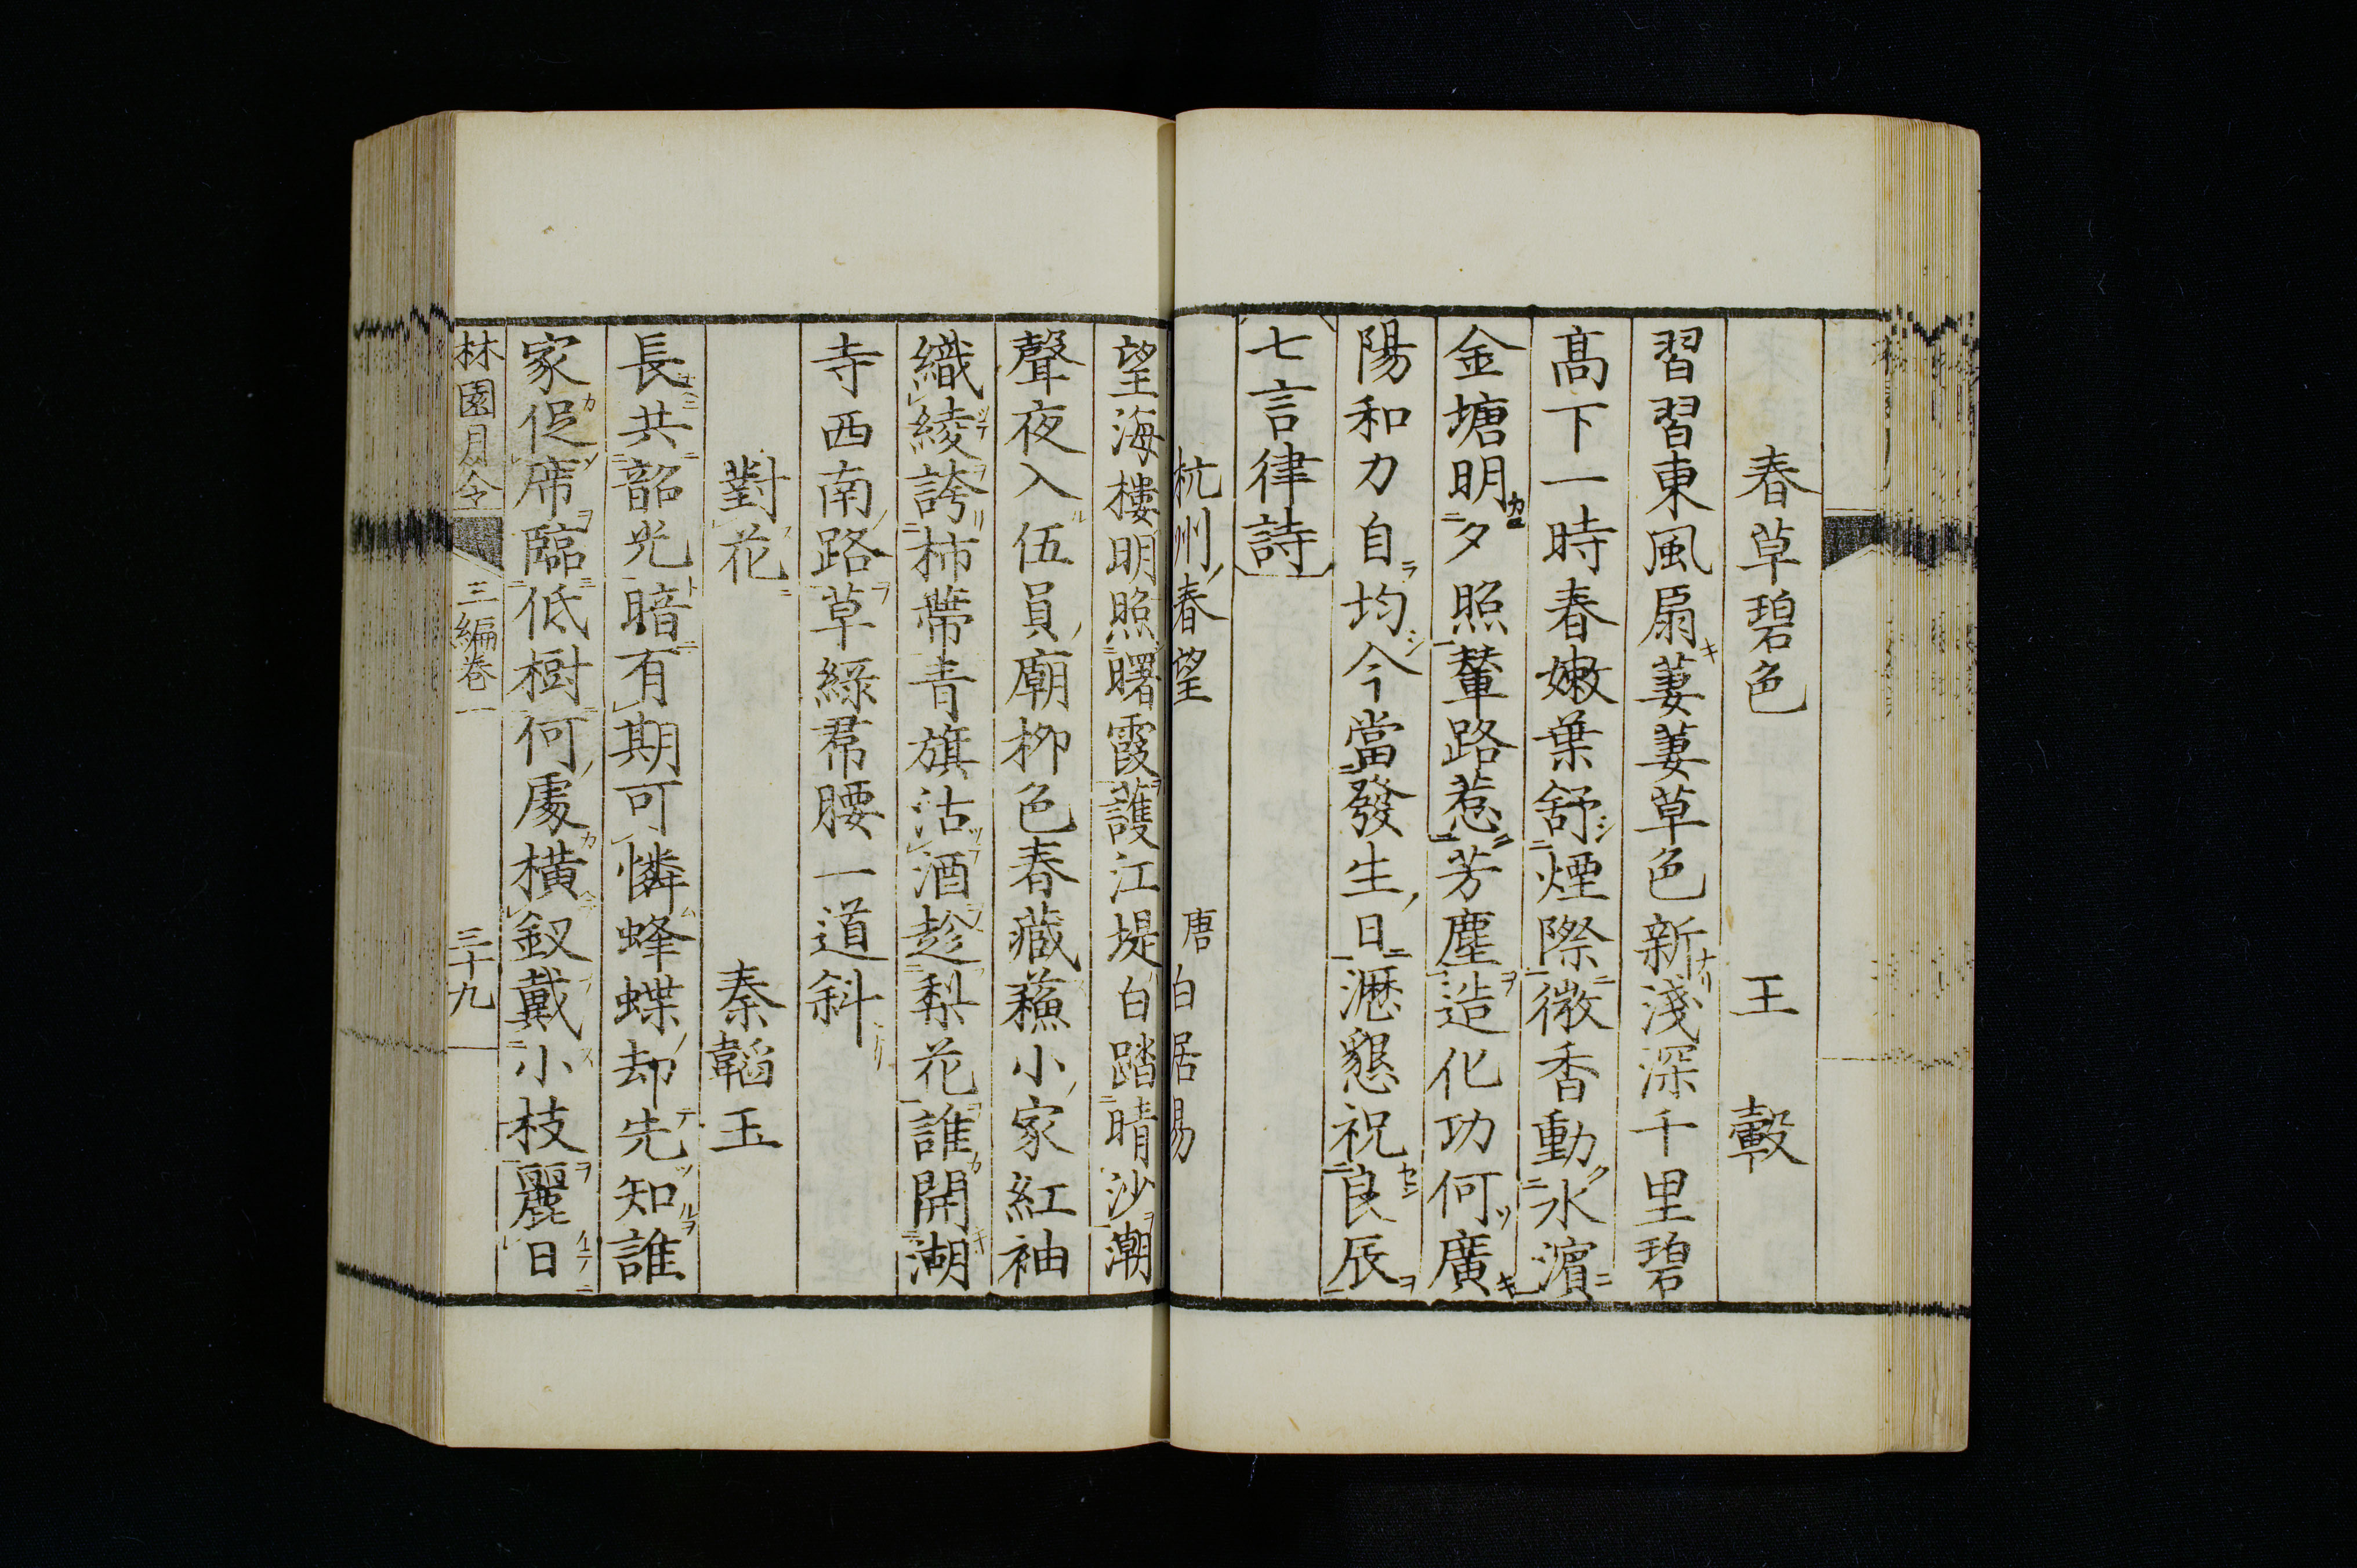 春草碧色 王 轂
習習東風扇萋萋草色新淺深千里碧
髙下一時春嫩葉舒煙際微香動水濵
金塘明夕照輦路惹芳塵造化功何廣
陽和力自均今當發生日瀝懇祝良辰
七言律詩
杭州春望 唐 白居易
望海樓明照曙霞護江堤白踏晴沙潮
聲夜入伍員廟柳色春藏蘓小家紅袖
織綾誇柿帶青旗沽酒趁梨花誰開湖
寺西南路草綠帬腰一道斜
對花 秦韜玉
長共韶光暗有期可憐蜂蝶却先知誰
家促席臨低樹何處橫釵戴小枝麗日
林園月令 三編卷一 三十九